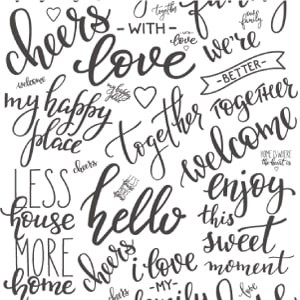 cheers
- WITH -
love
together
love
your
family
family
we're
BETTER
TOGETHER
welcome
my happy
place
my happy
place
together
welcome
HOME IS WHERE
the heart is
cheers
LESS
house
MORE
home
hello
enjoy
this
sweet
moment
cheers
i love
- MY -
family